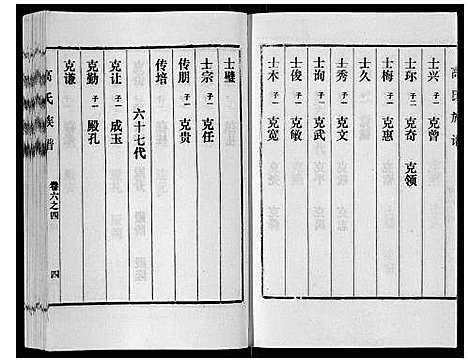 高氏族谱
士兴 子一 克曾
士环 子二 克奇 克领
士梅 子一 克惠
士久
士秀 子一 克文
士询 子一 克武
士俊 子一 克敏
士木 子一 克宽
士璧
士宗 子一 克任
传朋 子一 克贵
传培
六十七代
克让 子一 成玉
克勤 子一 殿孔
克谦
高氏族谱 卷六之四 四